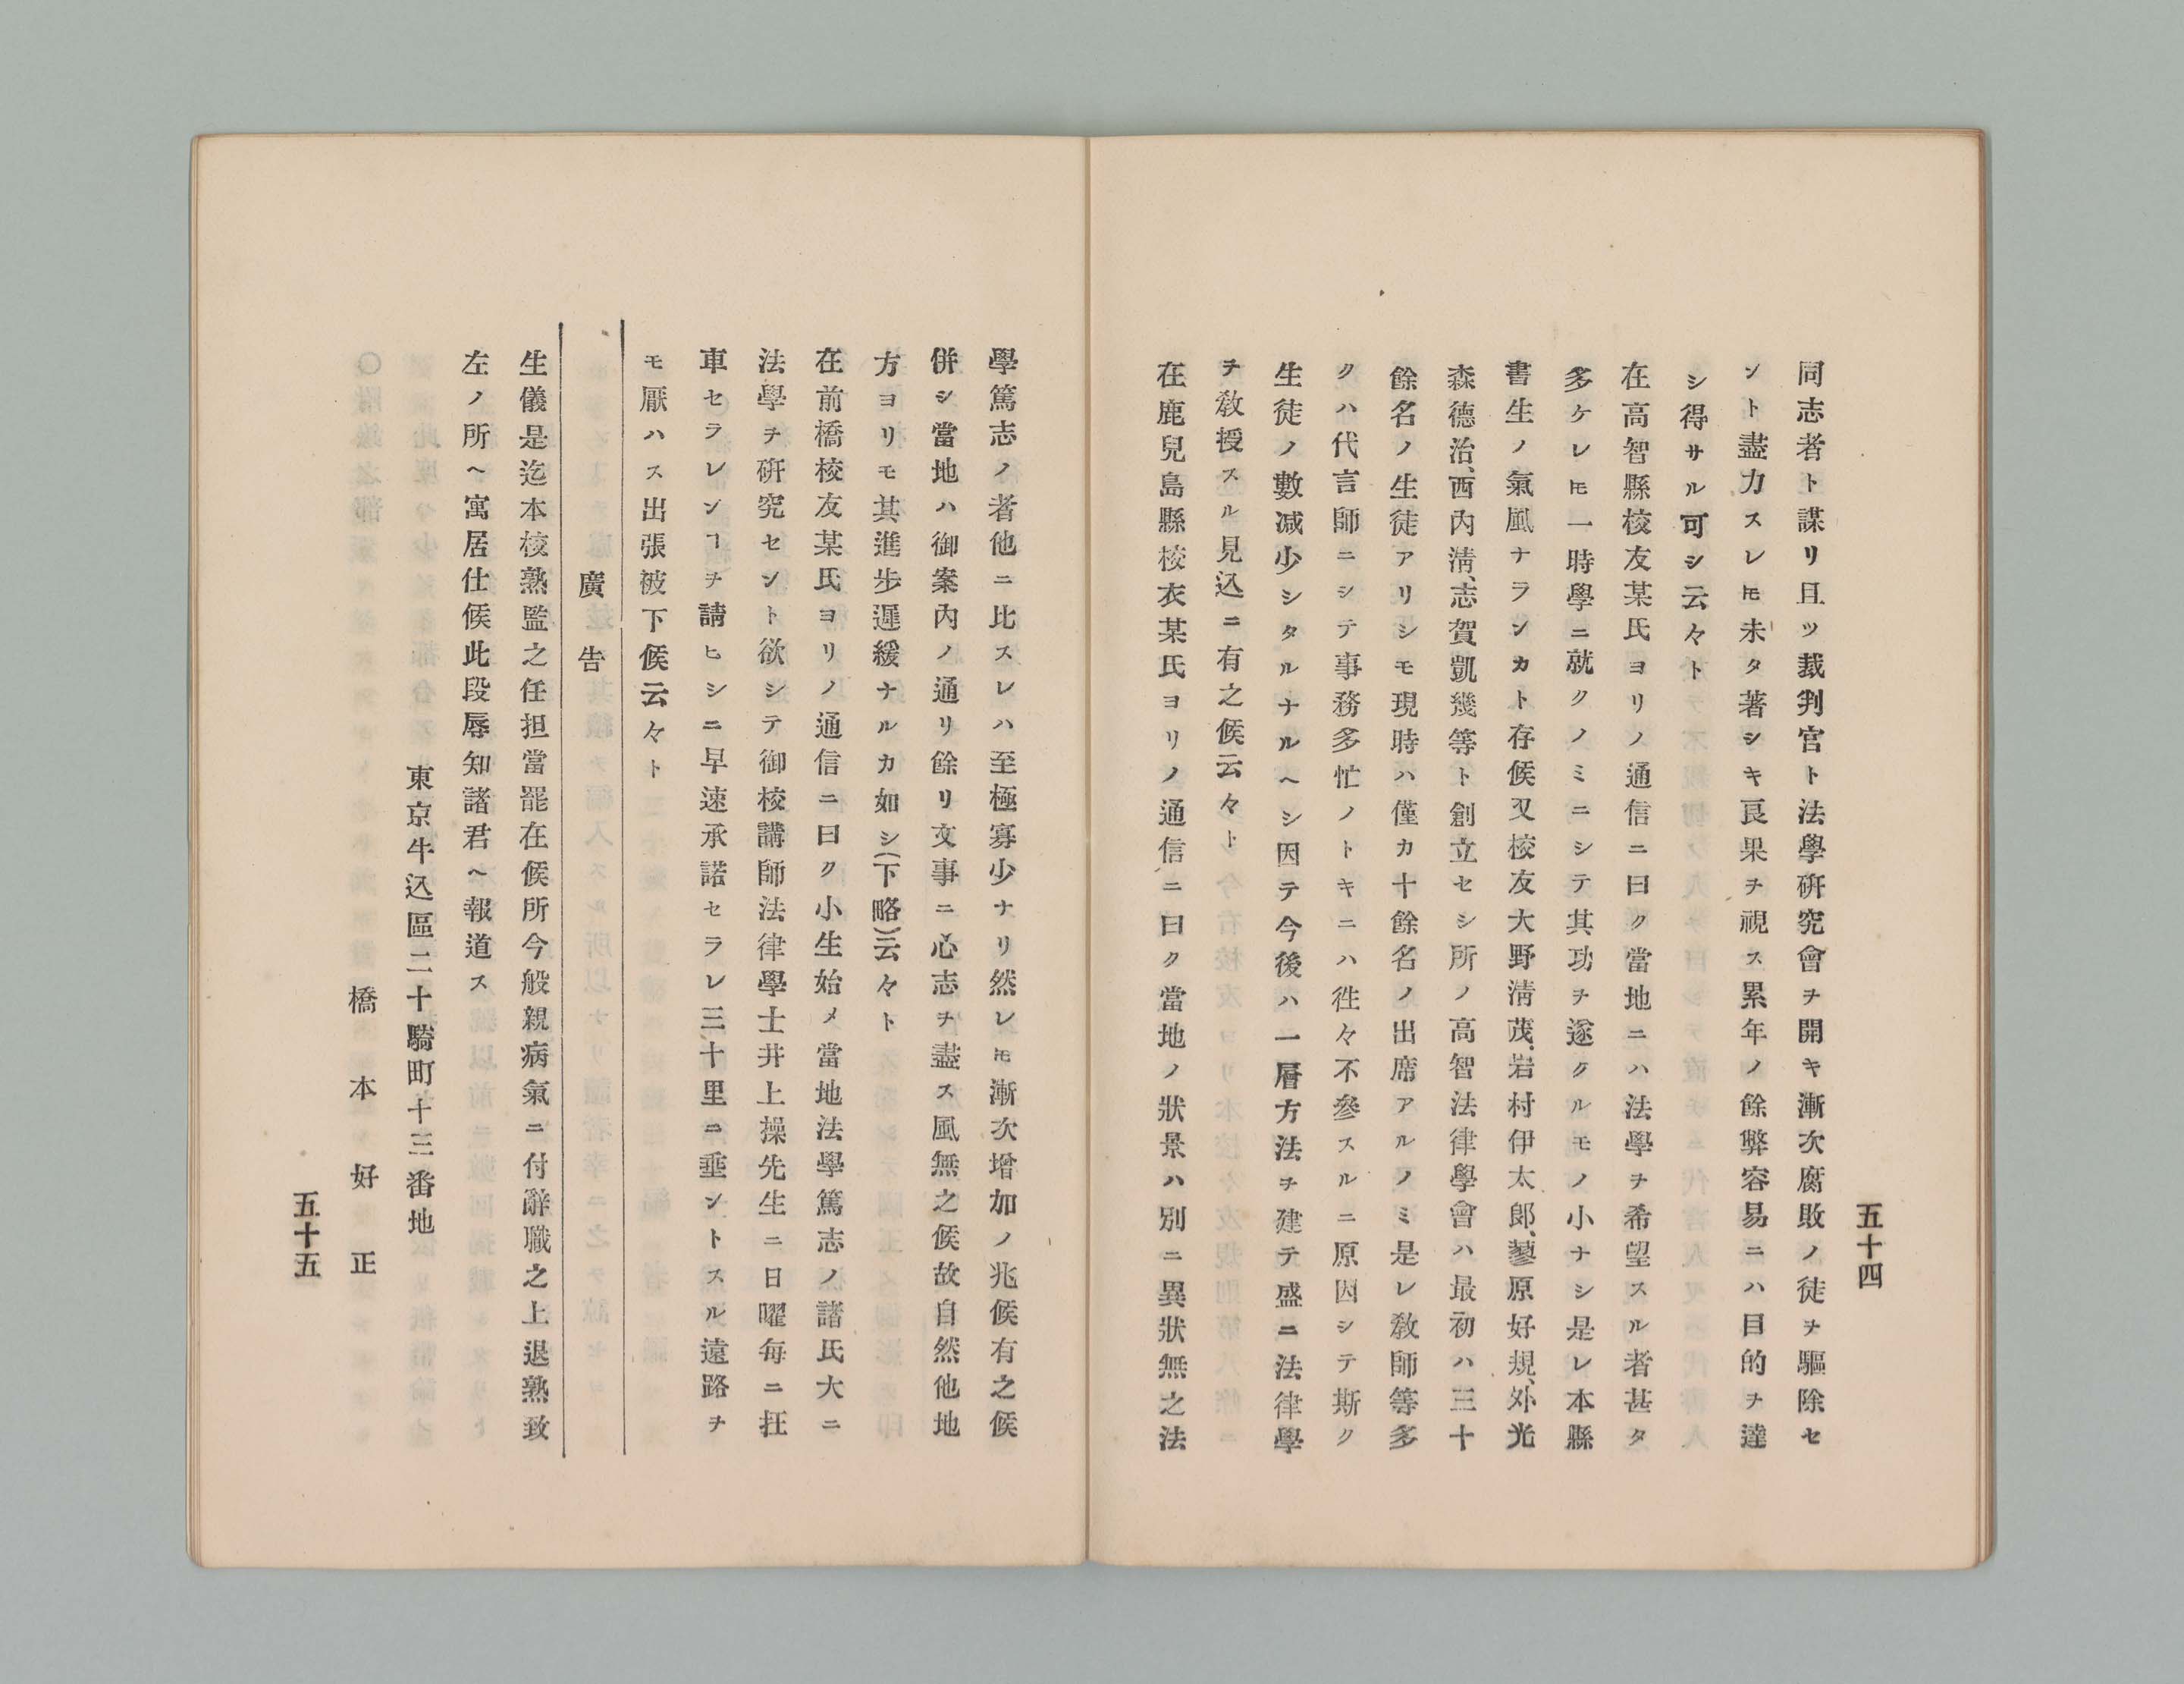 五十四
同志者ト謀リ且ッ裁判官ト法學硏究會ヲ開キ漸次腐敗ノ徒ヲ驅除セ
ントス盡力スレ𪜈未タ著シキ良果ヲ視ス累年ノ餘弊容易ニハ目的ヲ達
シ得サル可シ云々ト
在高智縣校友某氏ヨリノ通信ニ曰ク當地ニハ法學ヲ希望スル者甚タ
多ケレ𪜈一時學ニ就クノミニシテ其功ヲ遂クルモノ小ナシ是レ本縣
書生ノ氣風ナランカト存候又校友大野淸茂、岩村伊太郞、蓼原好規、外光
森德治、西內淸、志賀凱幾等ト創立セシ所ノ高智法律學會ハ最初ハ三十
餘名ノ生徒アリシモ現時ハ僅カ十餘名ノ出席アルノミ是レ敎師等多
クハ代言師ニシテ事務多忙ノトキニハ徃々不參スルニ原因シテ斯ク
生徒ノ數减少シタルナルヘシ因テ今後ハ一層方法ヲ建テ盛ニ法律學
ヲ敎授スル見込ニ有之候云々ト
在鹿兒島縣校衣某氏ヨリノ通信ニ曰ク當地ノ狀景ハ別ニ異狀無之法
學篤志ノ者他ニ比スレハ至極寡少ナリ然レ𪜈漸次增加ノ兆候有之候
併シ當地ハ御案內ノ通リ餘リ文事ニ心志ヲ盡ス風無之候故自然他地
方ヨリモ其進步遲緩ナルカ如シ(下略)云々ト
在前橋校友某氏ヨリノ通信ニ曰ク小生始メ當地法學篤志ノ諸氏大ニ
法學ヲ硏究セント欲シテ御校講師法律學士井上操先生ニ日曜每ニ抂
車セラレンヿヲ請ヒシニ早速承諾セラレ三十里ニ垂ントスル遠路ヲ
モ厭ハス出張被下候云々ト
廣告
生儀是迄本校熟監之任担當罷在候所今般親病氣ニ付辭職之上退熟致
左ノ所ヘ寓居仕候此段辱知諸君ヘ報道ス
東京牛込區二十騎町十三番地
橋本好正
五十五